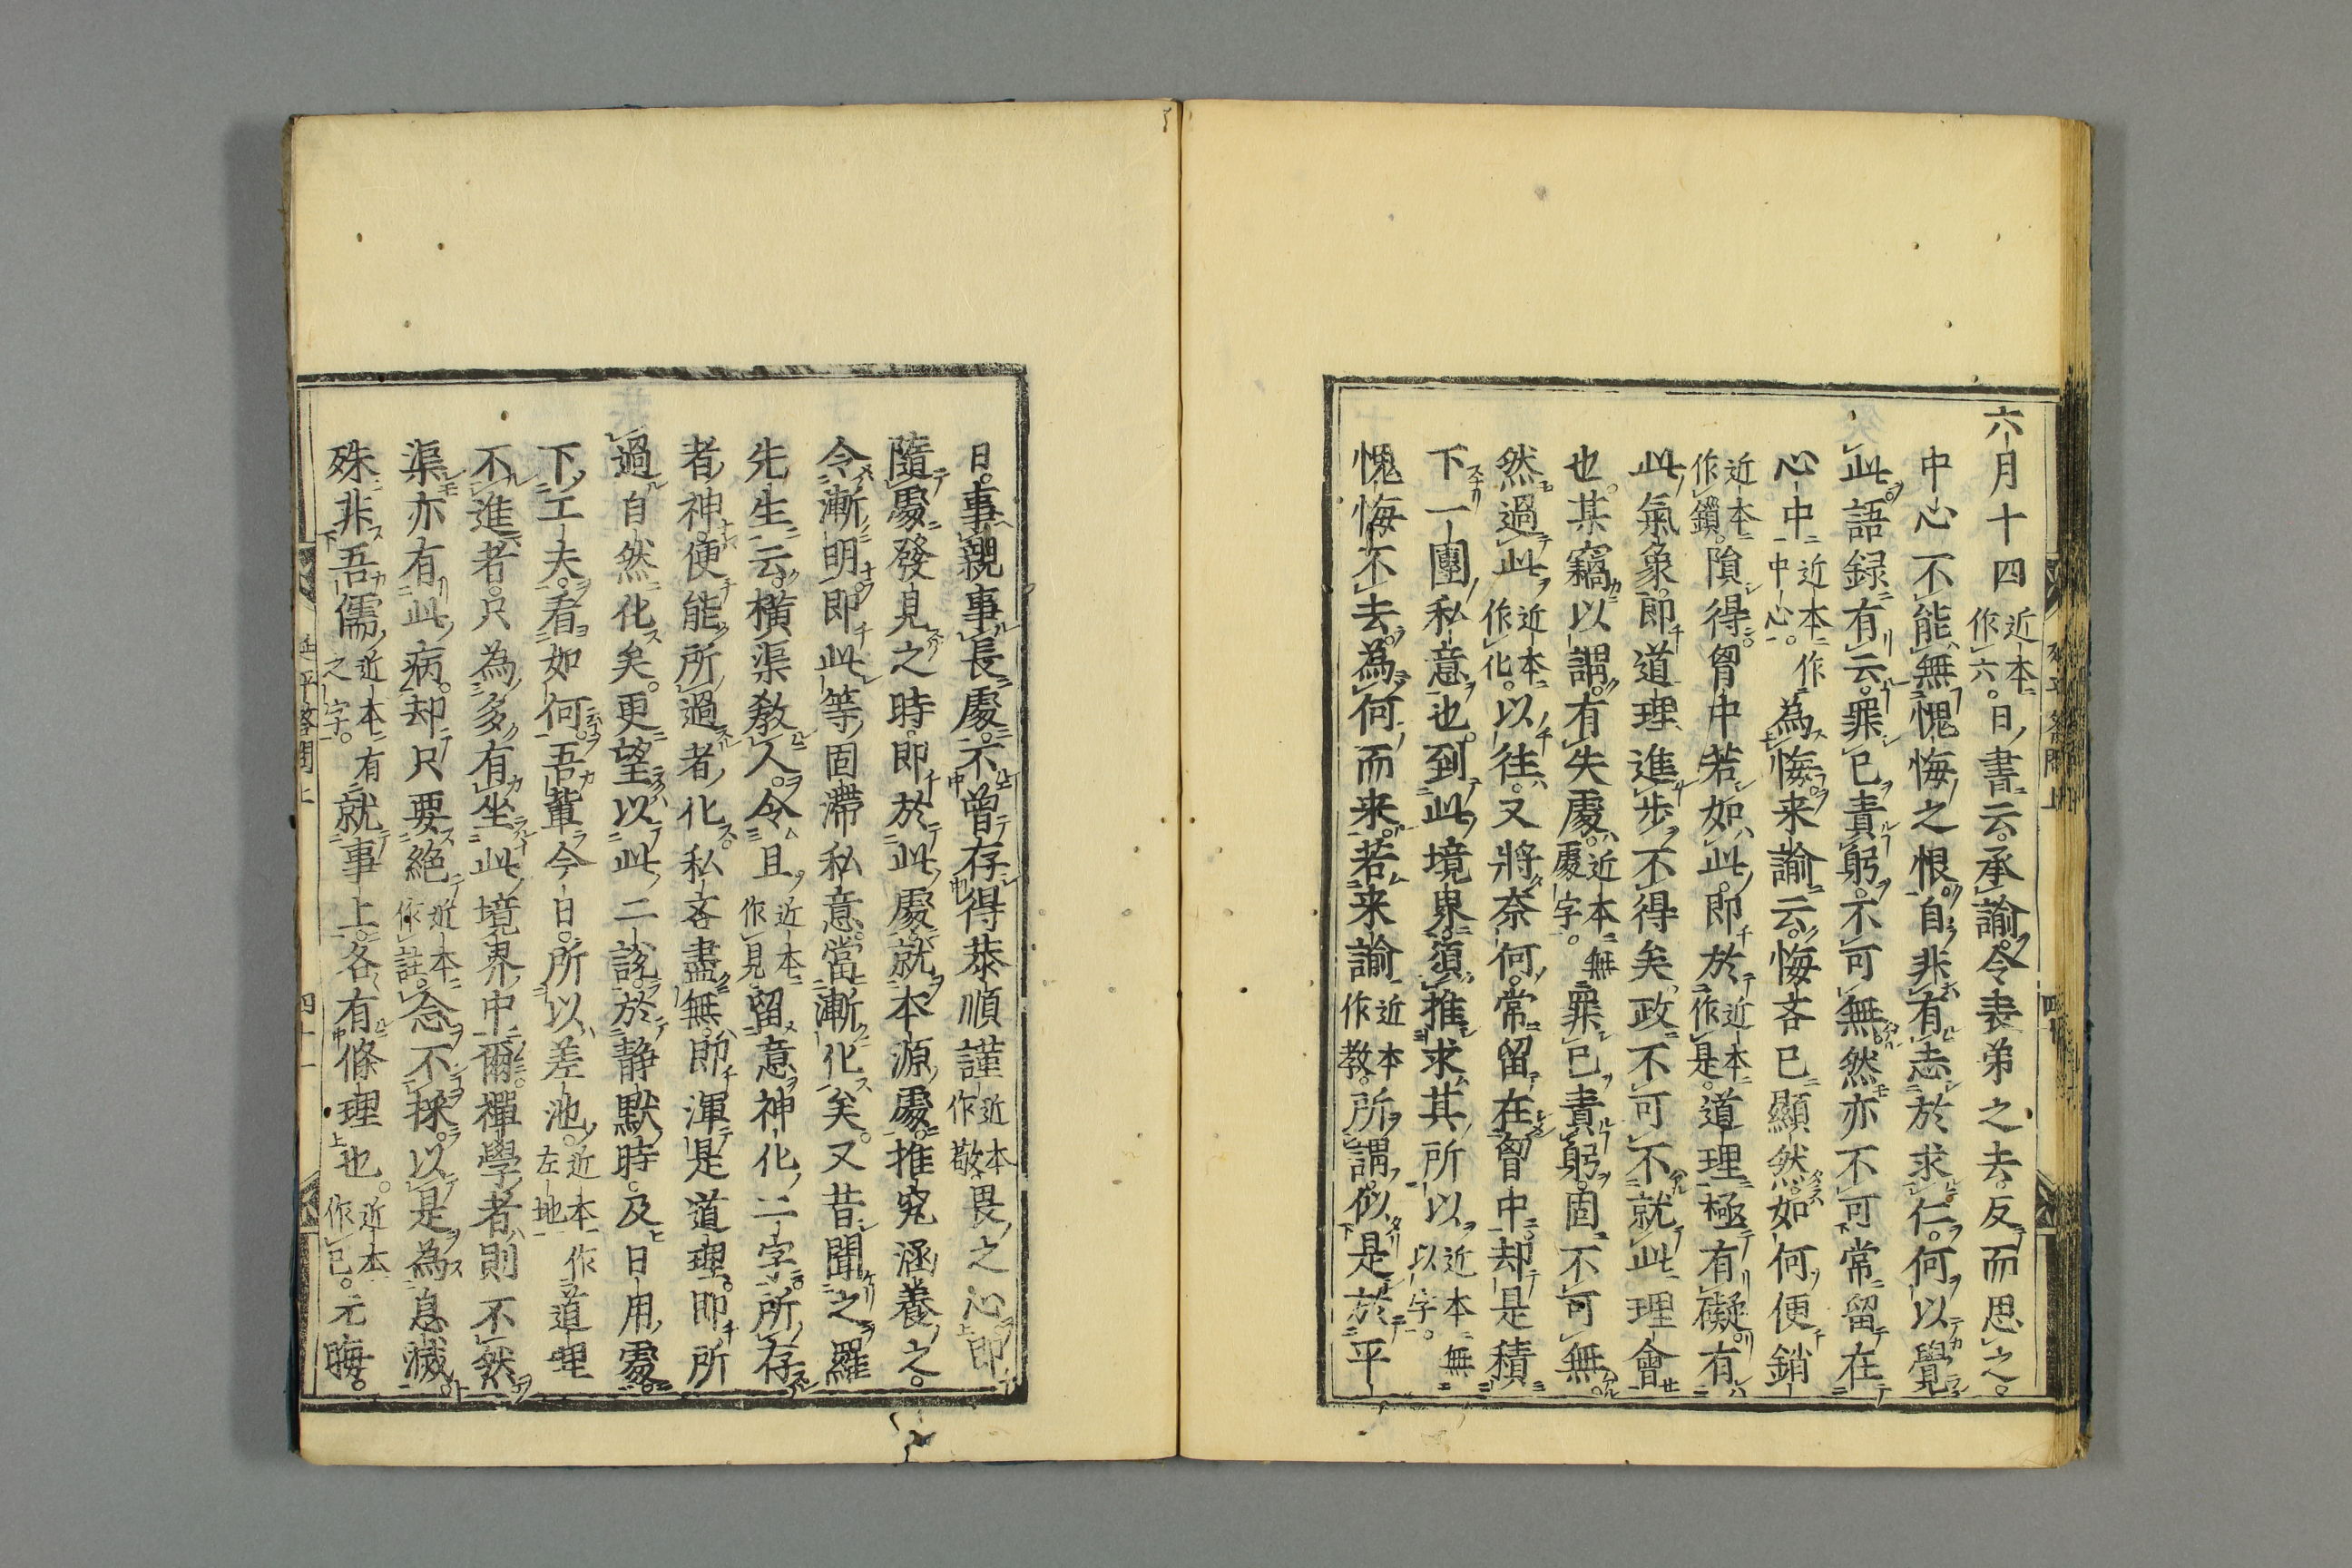 六月十四近本作六日書云承諭令表弟之去反而思之
中心不能無愧悔之恨自非有志於求仁何以覺
此語録有云罪已責躬不可無然亦不可常留在
心中近本作中心為悔来諭云悔吝已顯然如何便銷
近本作鎖隕得胷中若如此即於近本作是道理極有礙有
此氣象即道理進歩不得矣政不可不就此理會
也某竊以謂有失處近本無處字罪已責躬固不可無
然過此近本作化以往又將奈何常留在胷中却是積
下一團私意也到此境界須推求其所以近本無以字
愧悔不去為何而来若来諭近本作教所謂似是於平
日事親事長處不曾存得恭順謹近本作敬畏之心即
隨處發見之時即於此處就本源處推究涵養之
令漸明即此等固滯私意當漸化矣又昔聞之羅
先生云横渠教人令且近本作見留意神化二字所存
者神便能所過者化私吝盡無即渾是道理即所
過自然化矣更望以此二說於静默時及日用處
下工夫看如何吾輩今日所以差池近本作左地道理
不進者只為多有坐此境界中爾禪學者則不然
渠亦有此病却只要絶近本作註念不採以是為息滅
殊非吾儒近本有之字就事上各有條理也近本作已元晦
延平答問上
四十一